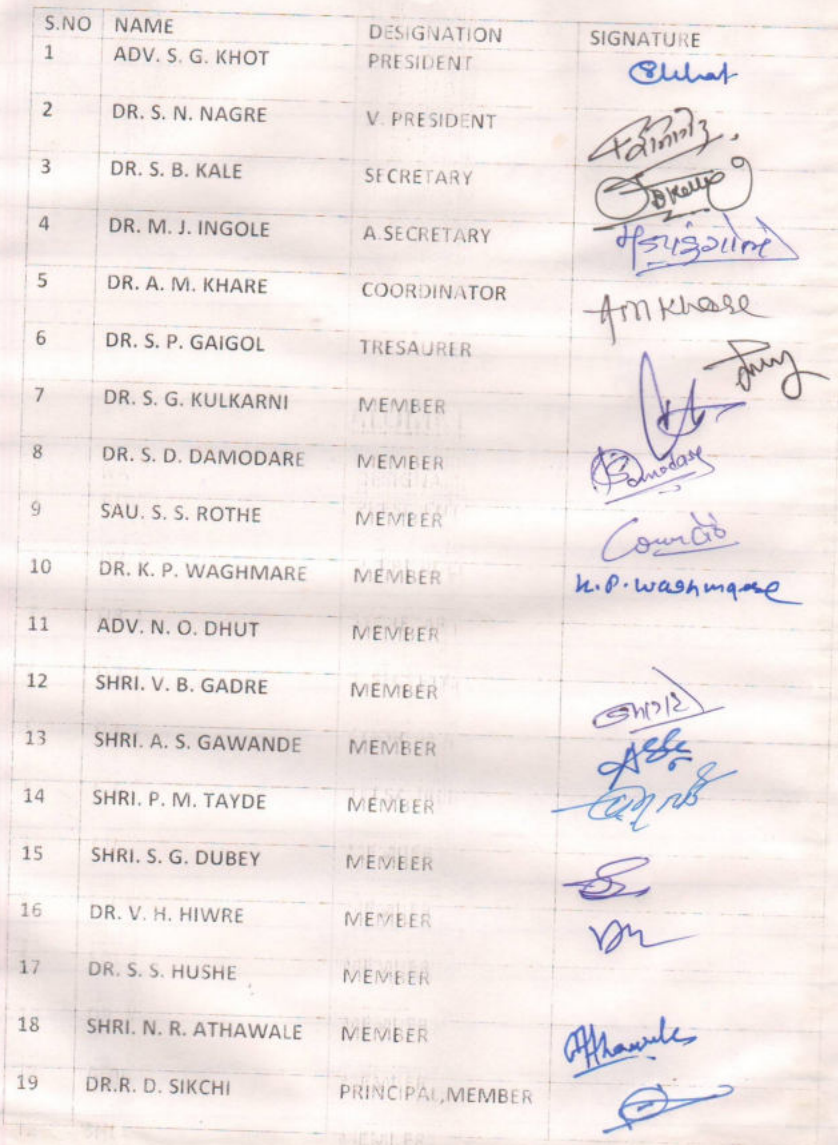 S.NO NAME DESIGNATION SIGNATURE
1 ADV. S. G. KHOT PRESIDENT
2 DR. S. N. NAGRE V. PRESIDENT
3 DR. S. B. KALE SECRETARY
4 DR. M. J. INGOLE A.SECRETARY
5 DR. A. M. KHARE COORDINATOR AM Khare
6 DR. S. P. GAIGOL TRESAURER
7 DR. S. G. KULKARNI MEMBER
8 DR. S. D. DAMODARE MEMBER
9 SAU. S. S. ROTHE MEMBER
10 DR. K. P. WAGHMARE MEMBER K.P. Waghmare
11 ADV. N. O. DHUT MEMBER
12 SHRI. V. B. GADRE MEMBER
13 SHRI. A. S. GAWANDE MEMBER
14 SHRI. P. M. TAYDE MEMBER
15 SHRI. S. G. DUBEY MEMBER
16 DR. V. H. HIWRE MEMBER
17 DR. S. S. HUSHE MEMBER
18 SHRI. N. R. ATHAWALE MEMBER
19 DR.R. D. SIKCHI PRINCIPAL,MEMBER